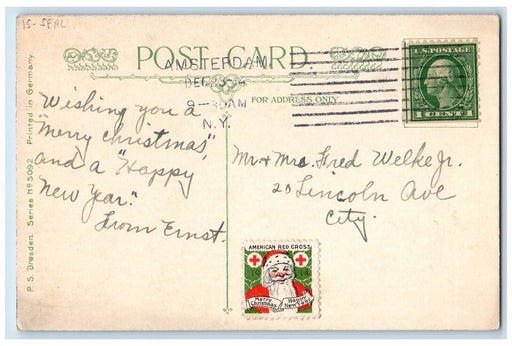 15-SEAL
POST CARD.
AMSTERDAM,
DEC 23
8-30AM
N.Y.
FOR ADDRESS ONLY.
U.S. POSTAGE
1 CENT 1
Wishing you a
"Merry Christmas",
and a "Happy
New Year."
From Ernst.
Mr. & Mrs. Fred Welke Jr.
20 Lincoln Ave
City.
AMERICAN RED CROSS
19 14
Merry Christmas
Happy New Year
P. S. Dresden. Series No 5092. Printed in Germany.